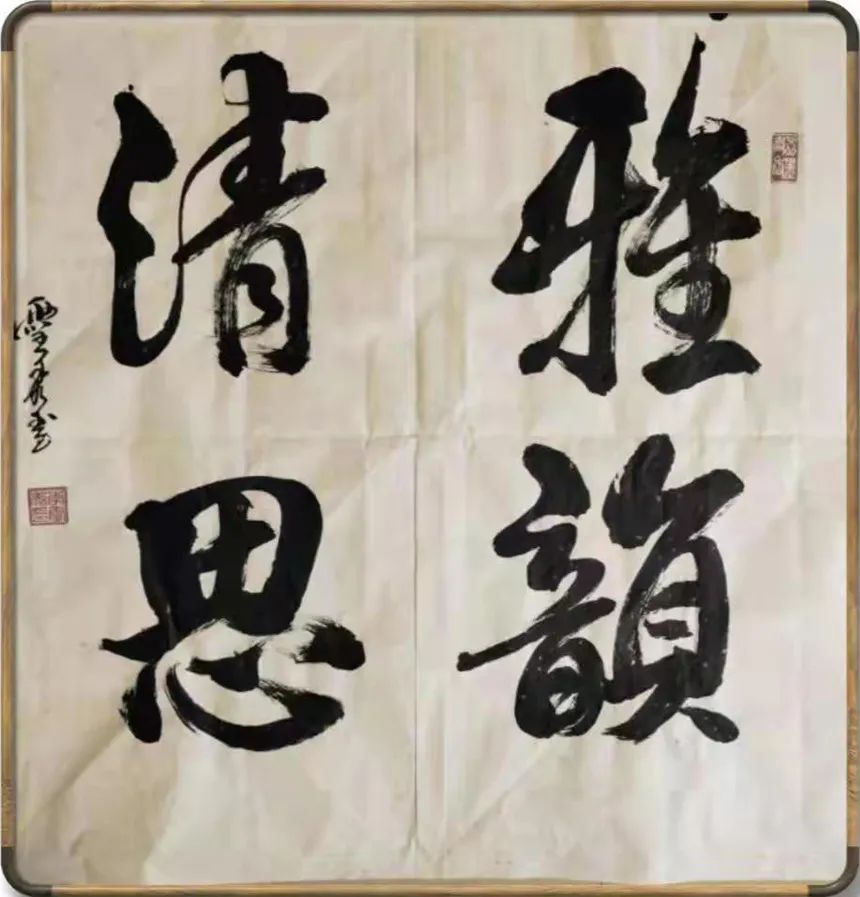 雅韻
清思